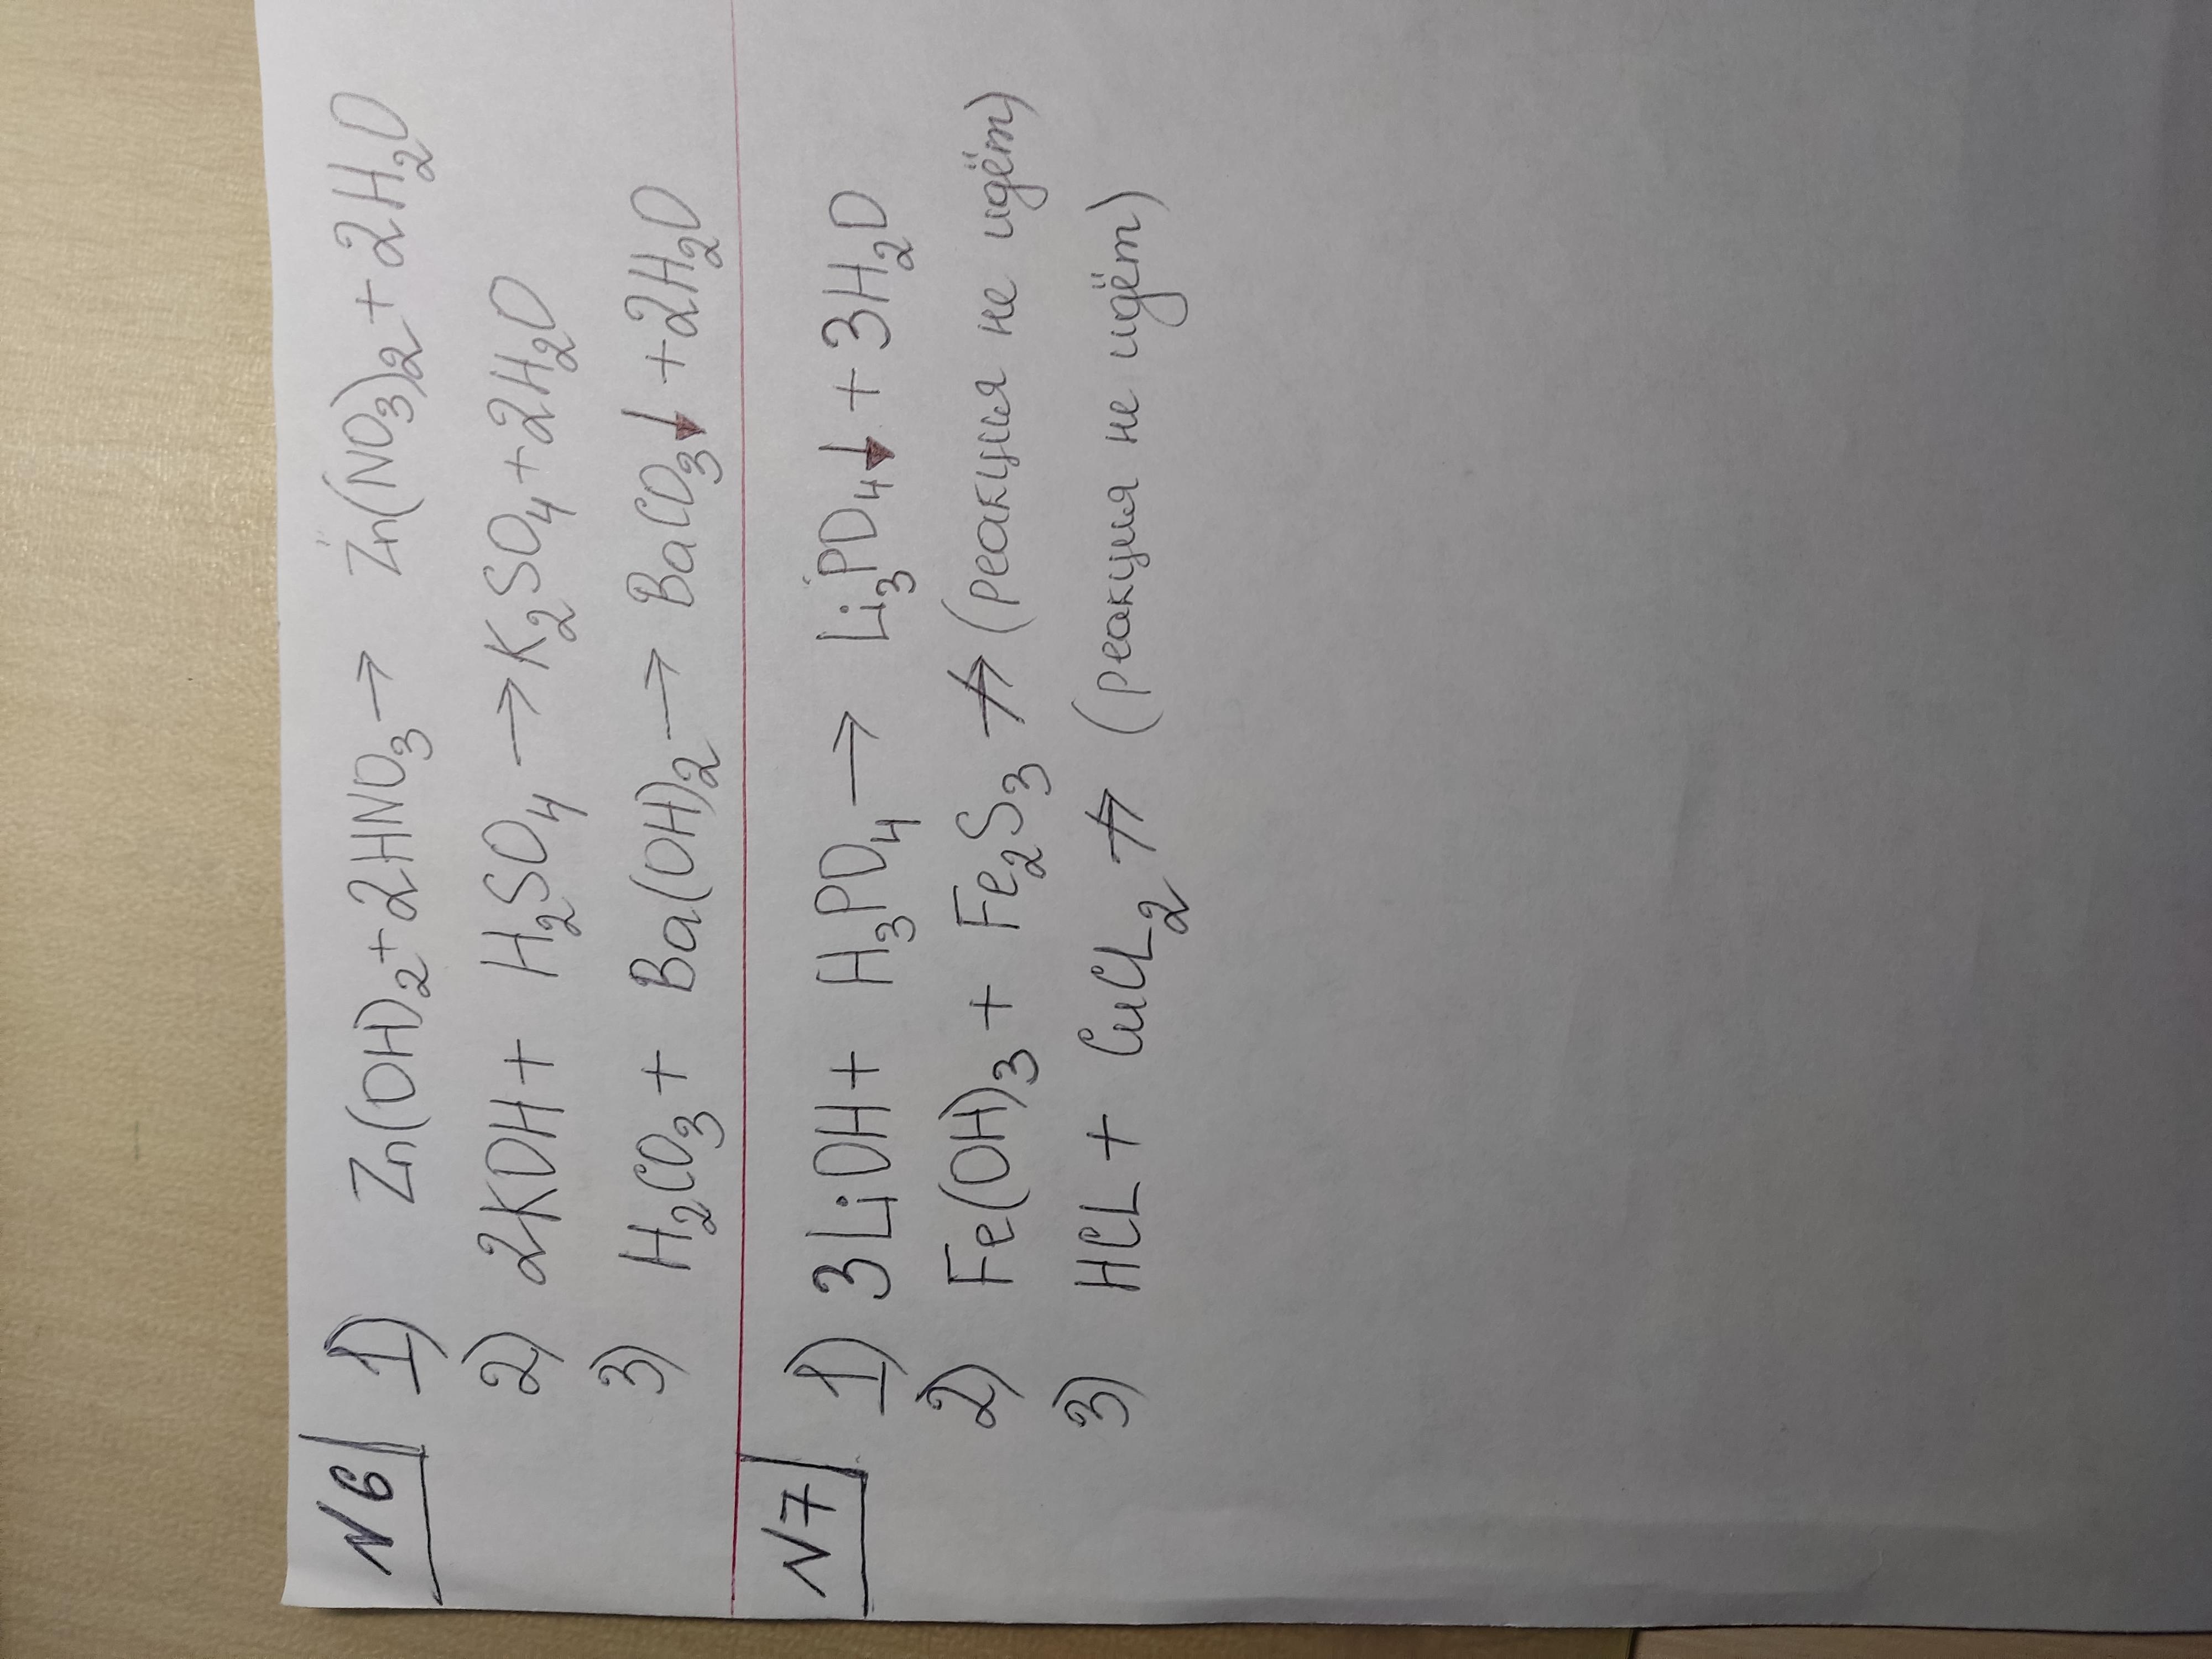 N6 1) Zn(OH)₂ + 2HNO₃ → Zn(NO₃)₂ + 2H₂O
2) 2KOH + H₂SO₄ → K₂SO₄ + 2H₂O
3) H₂CO₃ + Ba(OH)₂ → BaCO₃↓ + 2H₂O
N7 1) 3LiOH + H₃PO₄ → Li₃PO₄↓ + 3H₂O
2) Fe(OH)₃ + Fe₂S₃ ↛ (реакция не идёт)
3) HCL + CuCL₂ ↛ (реакция не идёт)